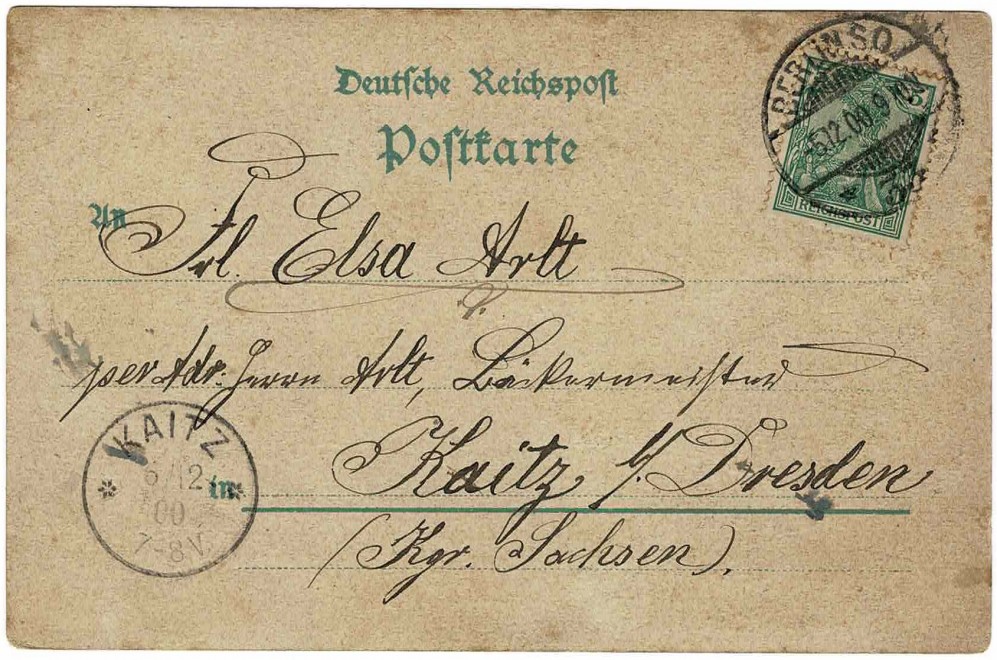 Deutsche Reichspost
Postkarte
BERLIN SO
5.12.00.9
REICHSPOST
An Frl. Elsa Arlt
per Adr. Herrn Arlt, Bäckermeister
KAITZ
6/12
00
7-8V.
in Kaitz b/ Dresden
(Kgr. Sachsen).